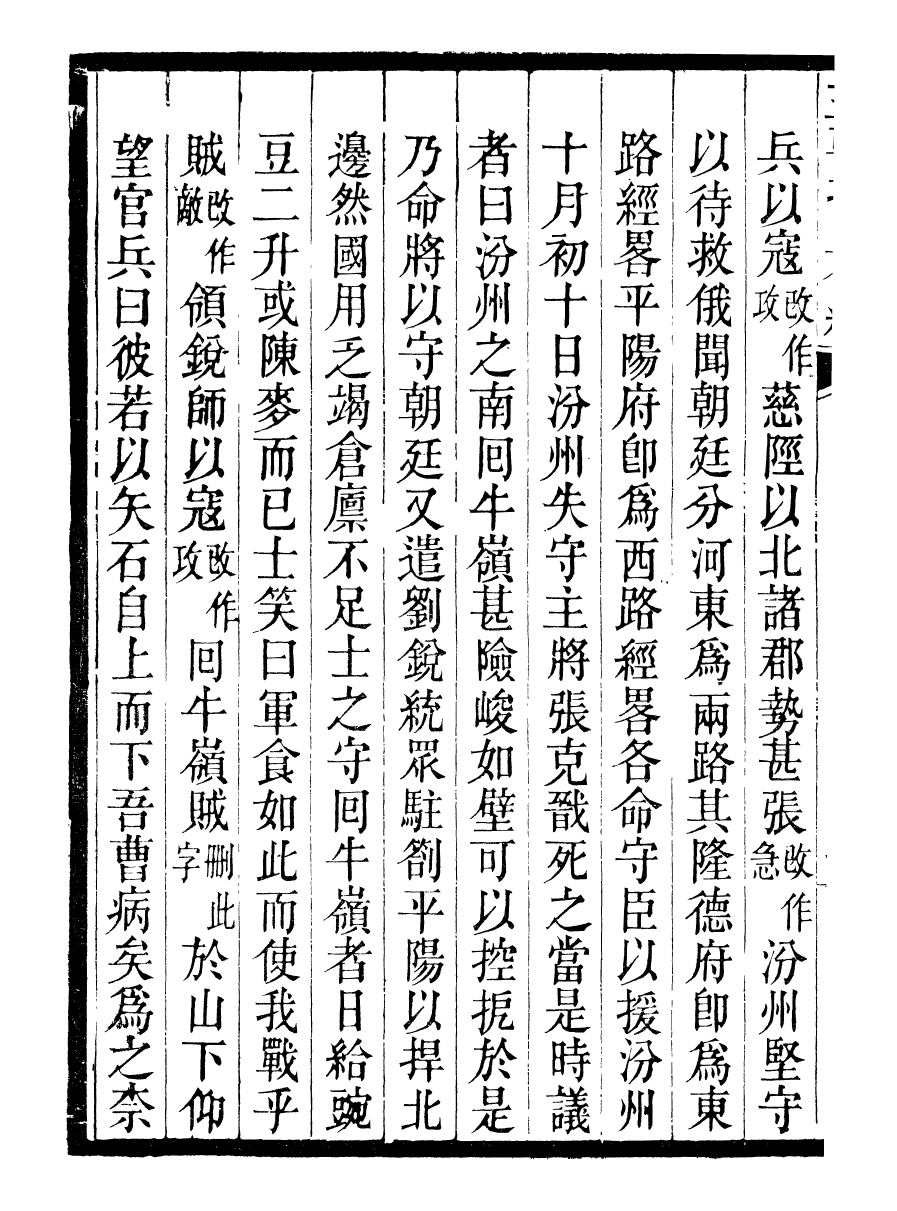 兵以寇改作攻慈隰以北諸郡勢甚張改作急汾州堅守
以待救俄聞朝廷分河東爲兩路其隆德府卽爲東
路經畧平陽府卽爲西路經畧各命守臣以援汾州
十月初十日汾州失守主將張克戩死之當是時議
者曰汾州之南回牛嶺甚險峻如壁可以控扼於是
乃命將以守朝廷又遣劉銳統眾駐劄平陽以捍北
邊然國用乏竭倉廪不足士之守回牛嶺者日給豌
豆二升或陳麥而已士笑曰軍食如此而使我戰乎
賊改作敵領銳師以寇改作攻回牛嶺賊刪此字於山下仰
望官兵曰彼若以矢石自上而下吾曹病矣爲之柰